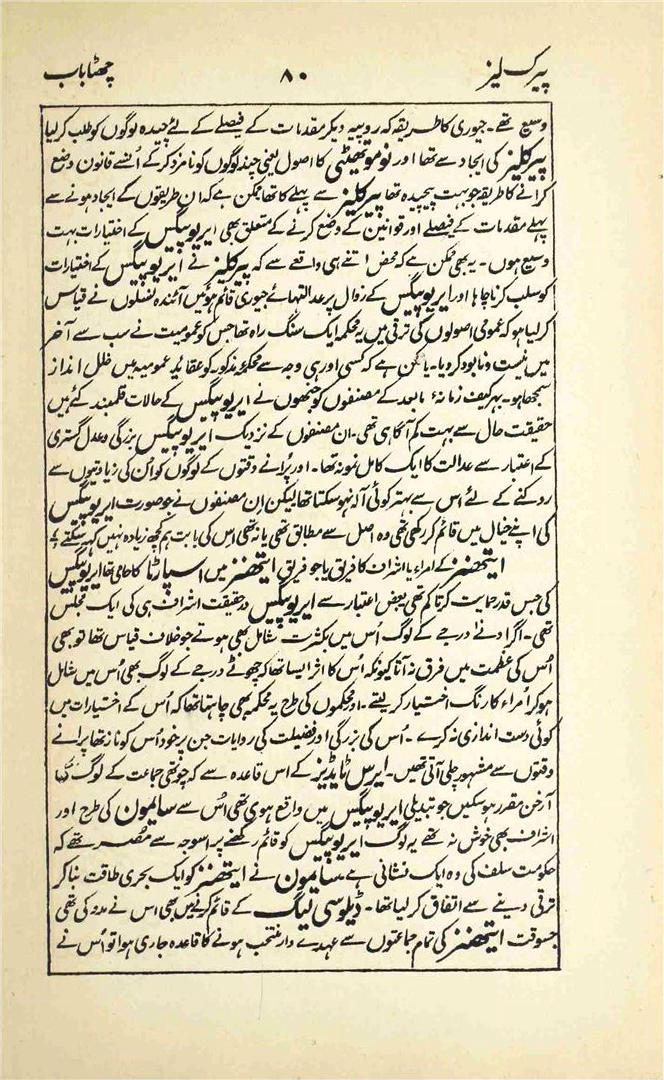 پیرکلیز ۸۰ چھٹا باب
وسیع تھے۔ جیوری کا طریقہ کہ روپیہ دیکر مقدمات کے فیصلے کے لئے چیدہ لوگوں کو طلب کرلیا
پیرکلیز کی ایجاد سے تھا اور نوموتھیٹی کا اصول یعنی چند لوگوں کو نامزد کرکے اُنسے قانون وضع
کرانے کا طریقہ جو بہت پیچیدہ تھا پیرکلیز سے پہلے کا تھا ممکن ہے کہ ان طریقوں کے ایجاد ہونے سے
پہلے مقدمات کے فیصلے اور قوانین کے وضع کرنے کے متعلق بھی ایریوپیگس کے اختیارات بہت
وسیع ہوں۔ یہ بھی ممکن ہے کہ محض اتنے ہی واقعے سے کہ پیرکلیز نے ایریوپیگس کے اختیارات
کو سلب کرنا چاہا اور ایریوپیگس کے زوال پر عدالتہائے جیوری قائم ہوئیں آئندہ نسلوں نے قیاس
کرلیا ہو کہ عمومی اصولوں کی ترقی میں یہ محکمہ ایک سنگ راہ تھا جس کو عمومیت نے سب سے آخر
میں نیست و نابود کردیا۔ یا ممکن ہے کہ کسی اور ہی وجہ سے محکمۂ مذکور کو عقاید عمومیہ میں خلل انداز
سمجھا ہو۔ بہرکیف زمانۂ مابعد کے مصنفوں کو جنھوں نے ایریوپیگس کے حالات قلمبند کئے ہیں
حقیقت حال سے بہت کم آگاہی تھی۔ ان مصنفوں کے نزدیک ایریوپیگس بزرگی و عدل گستری
کے اعتبار سے عدالت کا ایک کامل نمونہ تھا۔ اور پُرانے وقتوں کے لوگوں کو اُن کی زیادتیوں سے
روکنے کے لئے اس سے بہتر کوئی آلہ نہو سکتا تھا لیکن اِن مصنفوں نے جو صورت ایریوپیگس
کی اپنے خیال میں قائم کر رکھی تھی وہ اصل سے مطابق تھی یا نہ تھی اس کی بابت ہم کچھ زیادہ نہیں کہہ سکتے
ایتھنز کے امراء یا اشراف کا فریق یا جو فریق ایتھنز میں اسپارٹا کا حامی تھا ایریوپیگس
کی جس قدر حمایت کرتا کم تھی بعض اعتبار سے ایریوپیگس درحقیقت اشراف ہی کی ایک مجلس
تھی۔ اگر ادنےٰ درجے کے لوگ اُس میں بکثرت شامل بھی ہوتے جو خلاف قیاس تھا تو بھی
اُس کی عظمت میں فرق نہ آتا کیونکہ اُس کا اثر ایسا تھا کہ چھوٹے درجے کے لوگ بھی اُس میں شامل
ہو کر اُمراء کا رنگ اختیار کرلیتے۔ اور محکموں کی طرح یہ محکمہ بھی چاہتا تھا کہ اُس کے اختیارات میں
کوئی دست اندازی نہ کرے۔ اُس کی بزرگی اور فضیلت کی روایات جن پر خود اُس کو ناز تھا پرانے
وقتوں سے مشہور چلی آتی تھیں۔ ایرس ٹایڈیز کے اس قاعدہ سے کہ چوتھی جماعت کے لوگ بھی
آرخن مقرر ہوسکیں جو تبدیلی ایریوپیگس میں واقع ہوی تھی اُس سے سایمون کی طرح اور
اشراف بھی خوش نہ تھے یہ لوگ ایریوپیگس کو قائم رکھنے پر اسوجہ سے مُصر تھے کہ
حکومت سلف کی وہ ایک نشانی ہے سایمون نے ایتھنز کو ایک بحری طاقت بناکر
ترقی دینے سے اتفاق کرلیا تھا۔ ڈیلوسی لیگ کے قائم کرنے میں بھی اس نے مدد کی تھی
جسوقت ایتھنز کی تمام جماعتوں سے عہدے دار منتخب ہونے کا قاعدہ جاری ہوا تو اُس نے